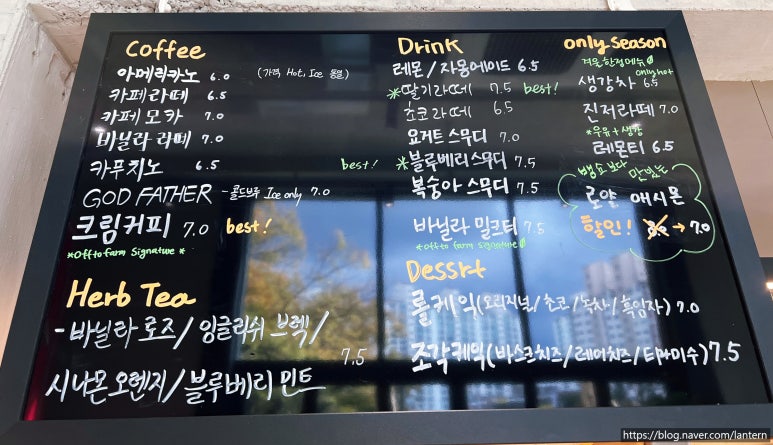 Coffee
아메리카노 6.0 (가격 Hot, Ice 동일)
카페라떼 6.5
카페모카 7.0
바닐라 라떼 7.0
카푸치노 6.5
GOD FATHER - 콜드브루 Ice only 7.0
크림커피 7.0 best!
*Off to farm Signature *
Herb Tea
- 바닐라 로즈 / 잉글리쉬 브렉 /
시나몬 오렌지 / 블루베리 민트 7.5
Drink
레몬 / 자몽에이드 6.5
*딸기라떼 7.5 best!
초코라떼 6.5
요거트 스무디 7.0
best! *블루베리 스무디 7.5
복숭아 스무디 7.5
바닐라 밀크티 7.5
*Off to farm Signature
Dessrt
롤케익(오리지널/초코/녹차/흑임자) 7.0
조각케익(바스크치즈/레어치즈/티라미수) 7.5
only season
겨울한정메뉴
only hot
생강차 6.5
진저라떼 7.0
*우유+생강
레몬티 6.5
뱅쇼보다 맛있는
로얄 애시몬
할인! → 7.0
https://blog.naver.com/lantern